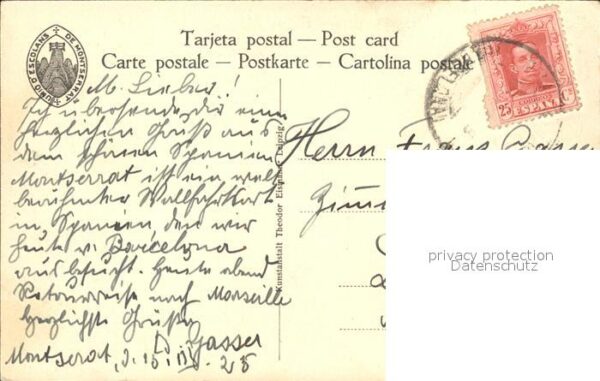 Tarjeta postal — Post card
Carte postale — Postkarte — Cartolina postale
UNIÓ D'ESCOLANS DE MONTSERRAT
M. Lieber!
Ich übersende dir einen
herzlichen Gruß aus
dem schönen Spanien
Montserrat ist ein welt
berühmter Wallfahrtsort
in Spanien, den wir
heute v. Barcelona
aus besucht. Heute abend
Retourreise nach Marseille
Herzlichste Grüße
Gasser
Montserrat, 25
Kunstanstalt Theodor Leipzig
Herrn Franz
25 Cs
ESPAÑA
privacy protection
Datenschutz